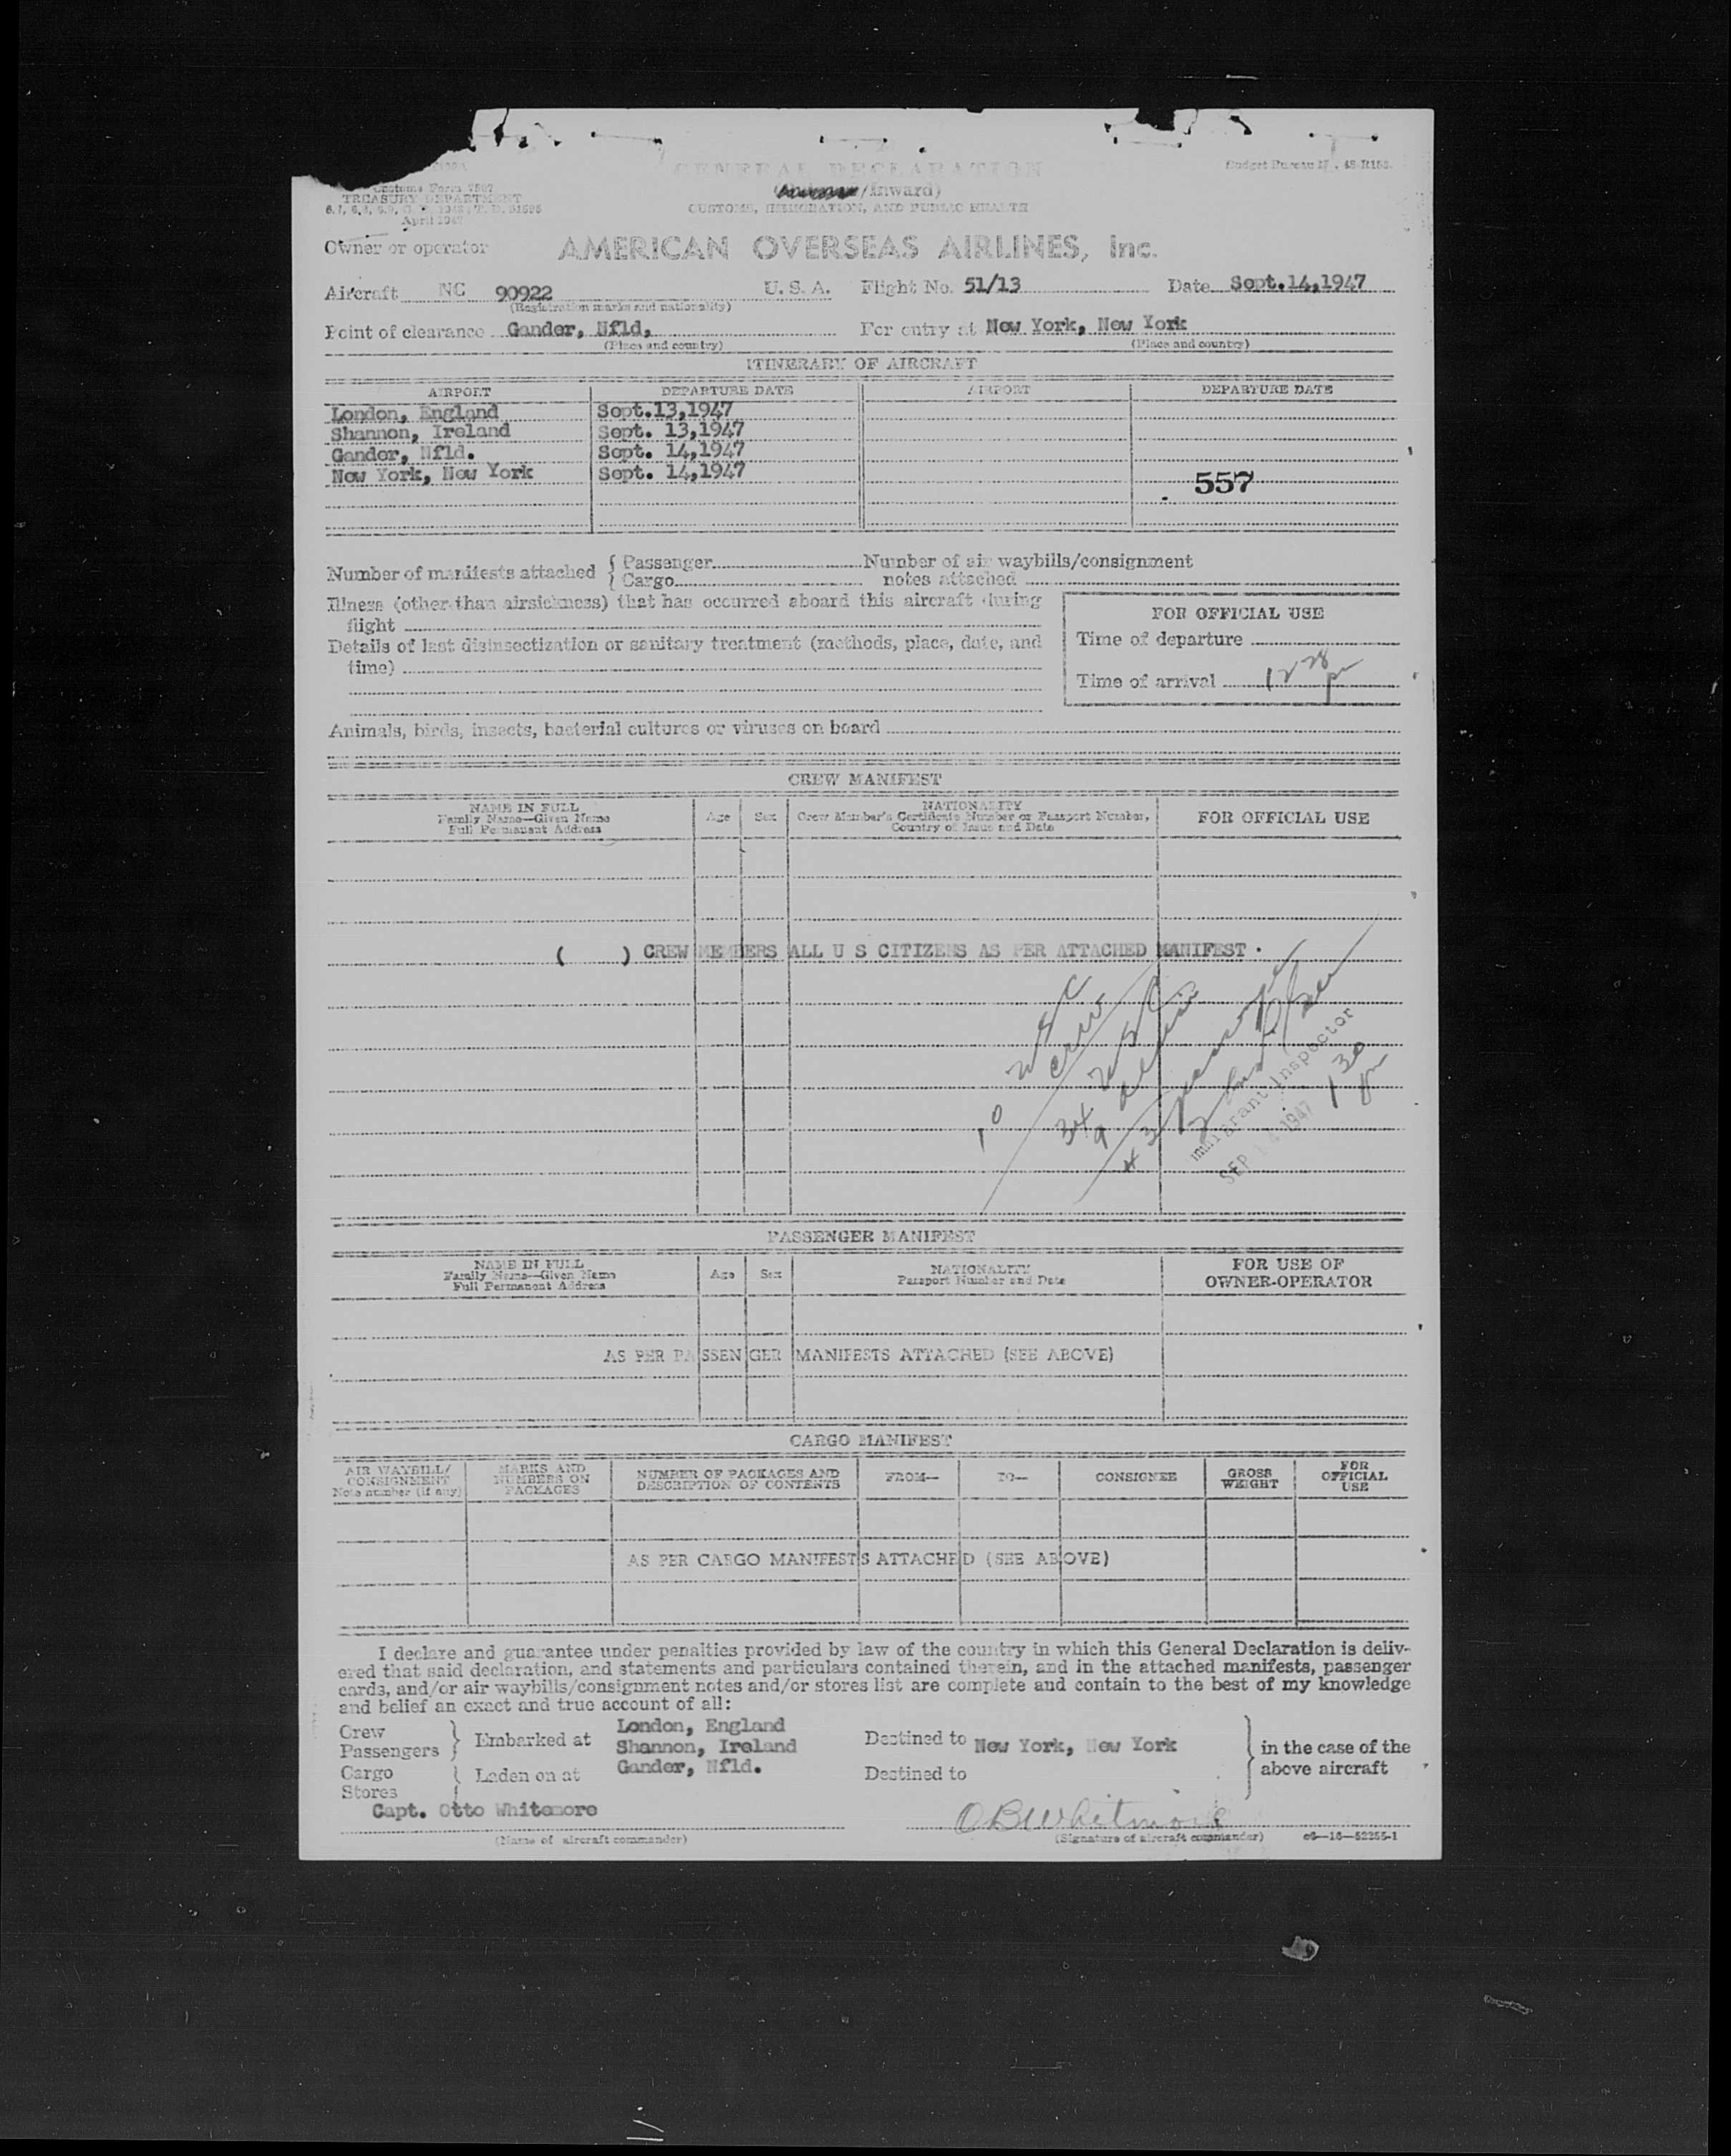 GENERAL DECLARATION
Budget Bureau
(/Inward)
Customs Form 7507
TREASURY DEPARTMENT
April 1947
CUSTOMS, IMMIGRATION, AND PUBLIC HEALTH
Owner or operator AMERICAN OVERSEAS AIRLINES, inc.
Aircraft NC 90922 U. S. A. Flight No. 51/13 Date Sept.14,1947
(Registration marks and nationality)
Point of clearance Gander, Nfld, For entry at New York, New York
(Place and country) (Place and country)
ITINERARY OF AIRCRAFT
AIRPORT DEPARTURE DATE AIRPORT DEPARTURE DATE
London, England Sept.13,1947
Shannon, Ireland Sept. 13,1947
Gander, Nfld. Sept. 14,1947
New York, New York Sept. 14,1947
557
Number of manifests attached { Passenger Number of air waybills/consignment
Cargo notes attached
Illness (other than airsickness) that has occurred aboard this aircraft during
flight
FOR OFFICIAL USE
Details of last disinsectization or sanitary treatment (methods, place, date, and
time)
Time of departure
Time of arrival 12 28 pm
Animals, birds, insects, bacterial cultures or viruses on board
CREW MANIFEST
NAME IN FULL
Family Name—Given Name
Full Permanent Address
Age Sex
NATIONALITY
Crew Member's Certificate Number or Passport Number,
Country of Issue and Date
FOR OFFICIAL USE
( ) CREW MEMBERS ALL U S CITIZENS AS PER ATTACHED MANIFEST .
10 USC crew
34 USC
9 aliens
43 passenger
Immigrant Inspector
SEP 14 1947
1 30 pm
PASSENGER MANIFEST
NAME IN FULL
Family Name—Given Name
Full Permanent Address
Age Sex
NATIONALITY
Passport Number and Date
FOR USE OF
OWNER-OPERATOR
AS PER PASSENGER MANIFESTS ATTACHED (SEE ABOVE)
CARGO MANIFEST
AIR WAYBILL/
CONSIGNMENT
Note number (if any)
MARKS AND
NUMBERS ON
PACKAGES
NUMBER OF PACKAGES AND
DESCRIPTION OF CONTENTS
FROM— TO— CONSIGNEE
GROSS
WEIGHT
FOR
OFFICIAL
USE
AS PER CARGO MANIFESTS ATTACHED (SEE ABOVE)
I declare and guarantee under penalties provided by law of the country in which this General Declaration is deliv-
ered that said declaration, and statements and particulars contained therein, and in the attached manifests, passenger
cards, and/or air waybills/consignment notes and/or stores list are complete and contain to the best of my knowledge
and belief an exact and true account of all:
Crew
Passengers } Embarked at
Cargo
Stores { Laden on at
London, England
Shannon, Ireland
Gander, Nfld.
Destined to New York, New York
Destined to
in the case of the
above aircraft
Capt. Otto Whitemore
OBWhitmore
(Name of aircraft commander) (Signature of aircraft commander) c6—16—52255-1